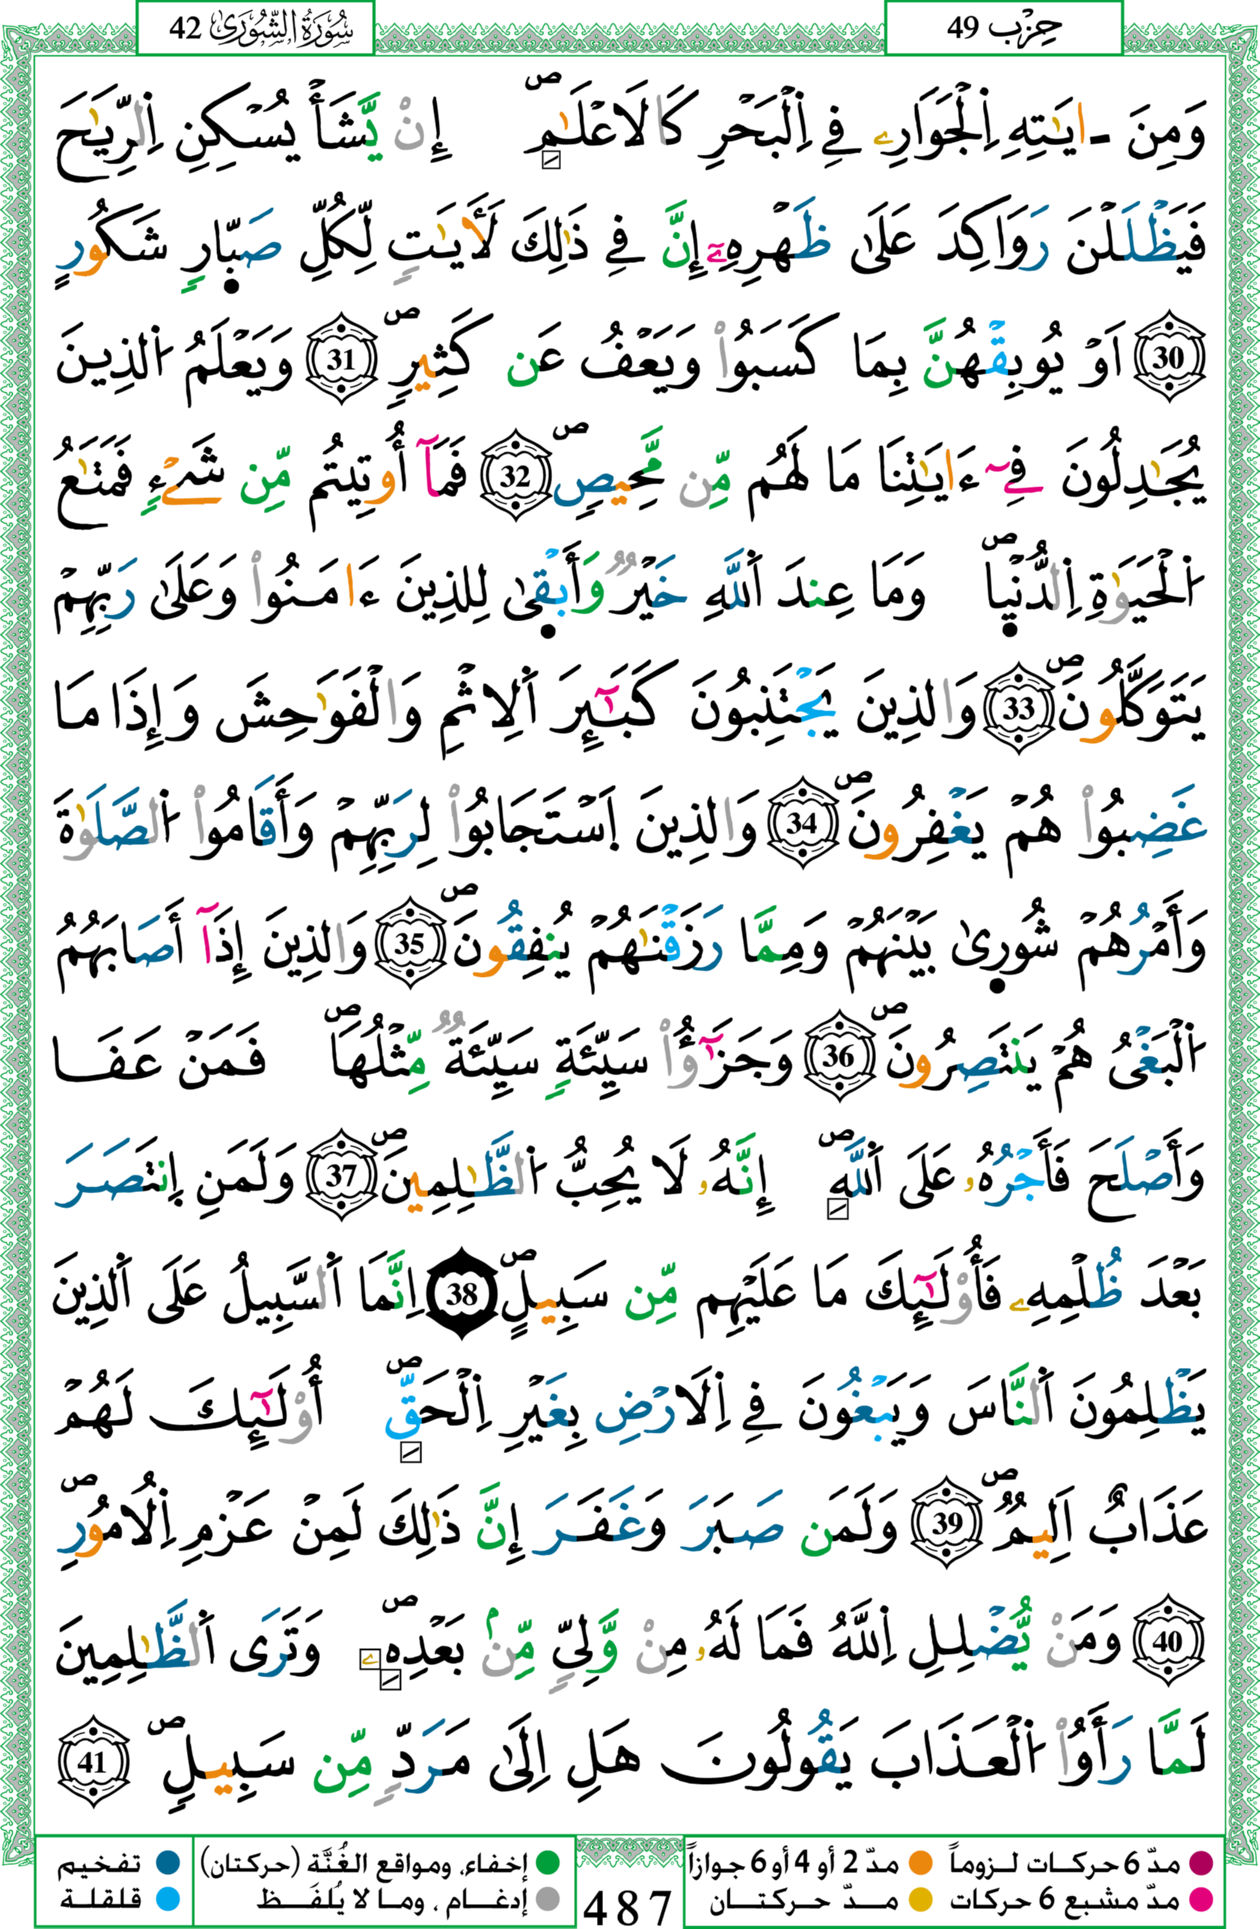 حِزْب 49
سُورَةُ الشُّورَىٰ 42
وَمِنَ ـ ايَٰتِهِ اِ۬لْجَوَارِۦ فِے اِ۬لْبَحْرِ كَالَاعْلَٰمِۖ إِنْ يَّشَأْ يُسْكِنِ اِ۬لرِّيَٰحَ
فَيَظْلَلْنَ رَوَاكِدَ عَلَىٰ ظَهْرِهِۦٓ إِنَّ فِے ذَٰلِكَ لَأٓيَٰتٖ لِّكُلِّ صَبّ۪ارٖ شَكُورٍ
30 اَوْ يُوبِقْهُنَّ بِمَا كَسَبُواْ وَيَعْفُ عَن كَثِيرٖۖ 31 وَيَعْلَمَ اَ۬لذِينَ
يُجَٰدِلُونَ فِےٓ ءَايَٰتِنَا مَا لَهُم مِّن مَّحِيصٖۖ 32 فَمَآ أُوتِيتُم مِّن شَےْءٖ فَمَتَٰعُ
اُ۬لْحَيَوٰةِ اِ۬لدُّنْي۪اۖ وَمَا عِندَ اَ۬للَّهِ خَيْرٞ وَأَبْق۪ىٰ لِلذِينَ ءَامَنُواْ وَعَلَىٰ رَبِّهِمْ
يَتَوَكَّلُونَۖ 33 وَالذِينَ يَجْتَنِبُونَ كَبَٰٓئِرَ اَ۬لِاثْمِ وَالْفَوَٰحِشَ وَإِذَا مَا
غَضِبُواْ هُمْ يَغْفِرُونَۖ 34 وَالذِينَ اَ۪سْتَجَابُواْ لِرَبِّهِمْ وَأَقَامُواْ اُ۬لصَّلَوٰةَ
وَأَمْرُهُمْ شُور۪ىٰ بَيْنَهُمْ وَمِمَّا رَزَقْنَٰهُمْ يُنفِقُونَۖ 35 وَالذِينَ إِذَآ أَصَابَهُمُ
اُ۬لْبَغْىُ هُمْ يَنتَصِرُونَۖ 36 وَجَزَٰٓؤُاْ سَيِّئَةٖ سَيِّئَةٞ مِّثْلُهَاۖ فَمَنْ عَفَا
وَأَصْلَحَ فَأَجْرُهُۥ عَلَى اَ۬للَّهِۖ إِنَّهُۥ لَا يُحِبُّ اُ۬لظَّٰلِمِينَۖ 37 وَلَمَنِ اِ۪نتَصَرَ
بَعْدَ ظُلْمِهِۦ فَأُوْلَٰٓئِكَ مَا عَلَيْهِم مِّن سَبِيلٍۖ 38 اِنَّمَا اَ۬لسَّبِيلُ عَلَى اَ۬لذِينَ
يَظْلِمُونَ اَ۬لنَّاسَ وَيَبْغُونَ فِے اِ۬لَارْضِ بِغَيْرِ اِ۬لْحَقِّۖ أُوْلَٰٓئِكَ لَهُمْ
عَذَابٌ اَلِيمٞۖ 39 وَلَمَن صَبَرَ وَغَفَرَ إِنَّ ذَٰلِكَ لَمِنْ عَزْمِ اِ۬لُامُورِۖ
40 وَمَنْ يُّضْلِلِ اِ۬للَّهُ فَمَا لَهُۥ مِنْ وَّلِيّٖ مِّنۢ بَعْدِهِۦۖ وَتَرَى اَ۬لظَّٰلِمِينَ
لَمَّا رَأَوُاْ اُ۬لْعَذَابَ يَقُولُونَ هَلِ اِلَىٰ مَرَدّٖ مِّن سَبِيلٖۖ 41
مدّ 6 حركات لـزوماً مدّ 2 أو 4 أو 6 جوازاً إخفاء، ومواقع الغُنَّة (حركتان) تفخيم
مدّ مشبع 6 حركات مـدّ حركتـان إدغام ، وما لا يُلفَـظ قلقلة
487